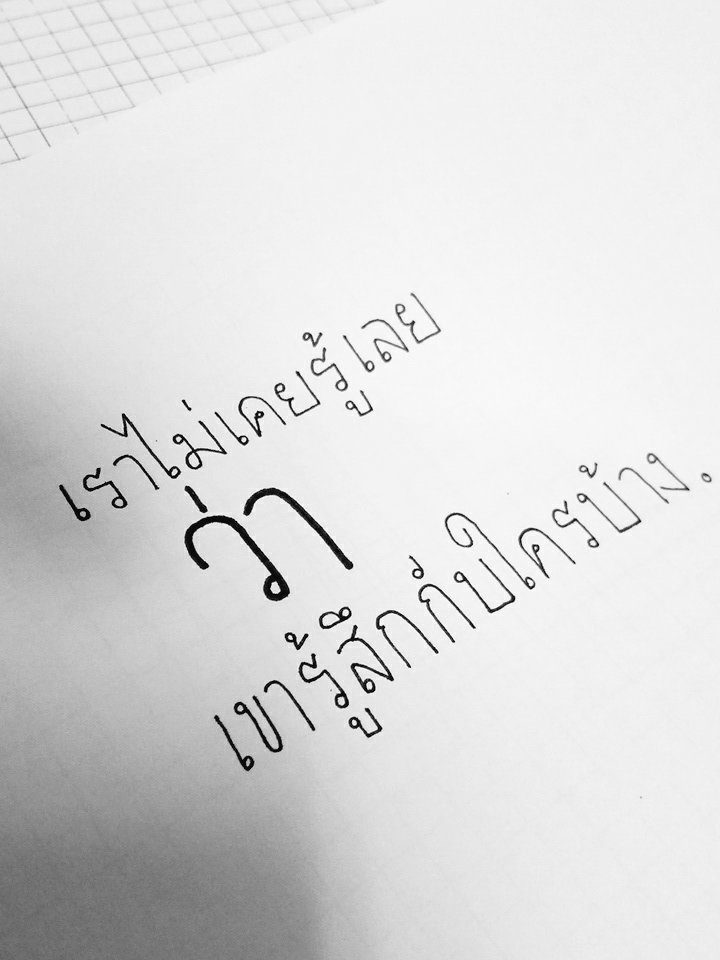 เราไม่เคยรู้เลย
ว่า
เขารู้สึกกับใครบ้าง.